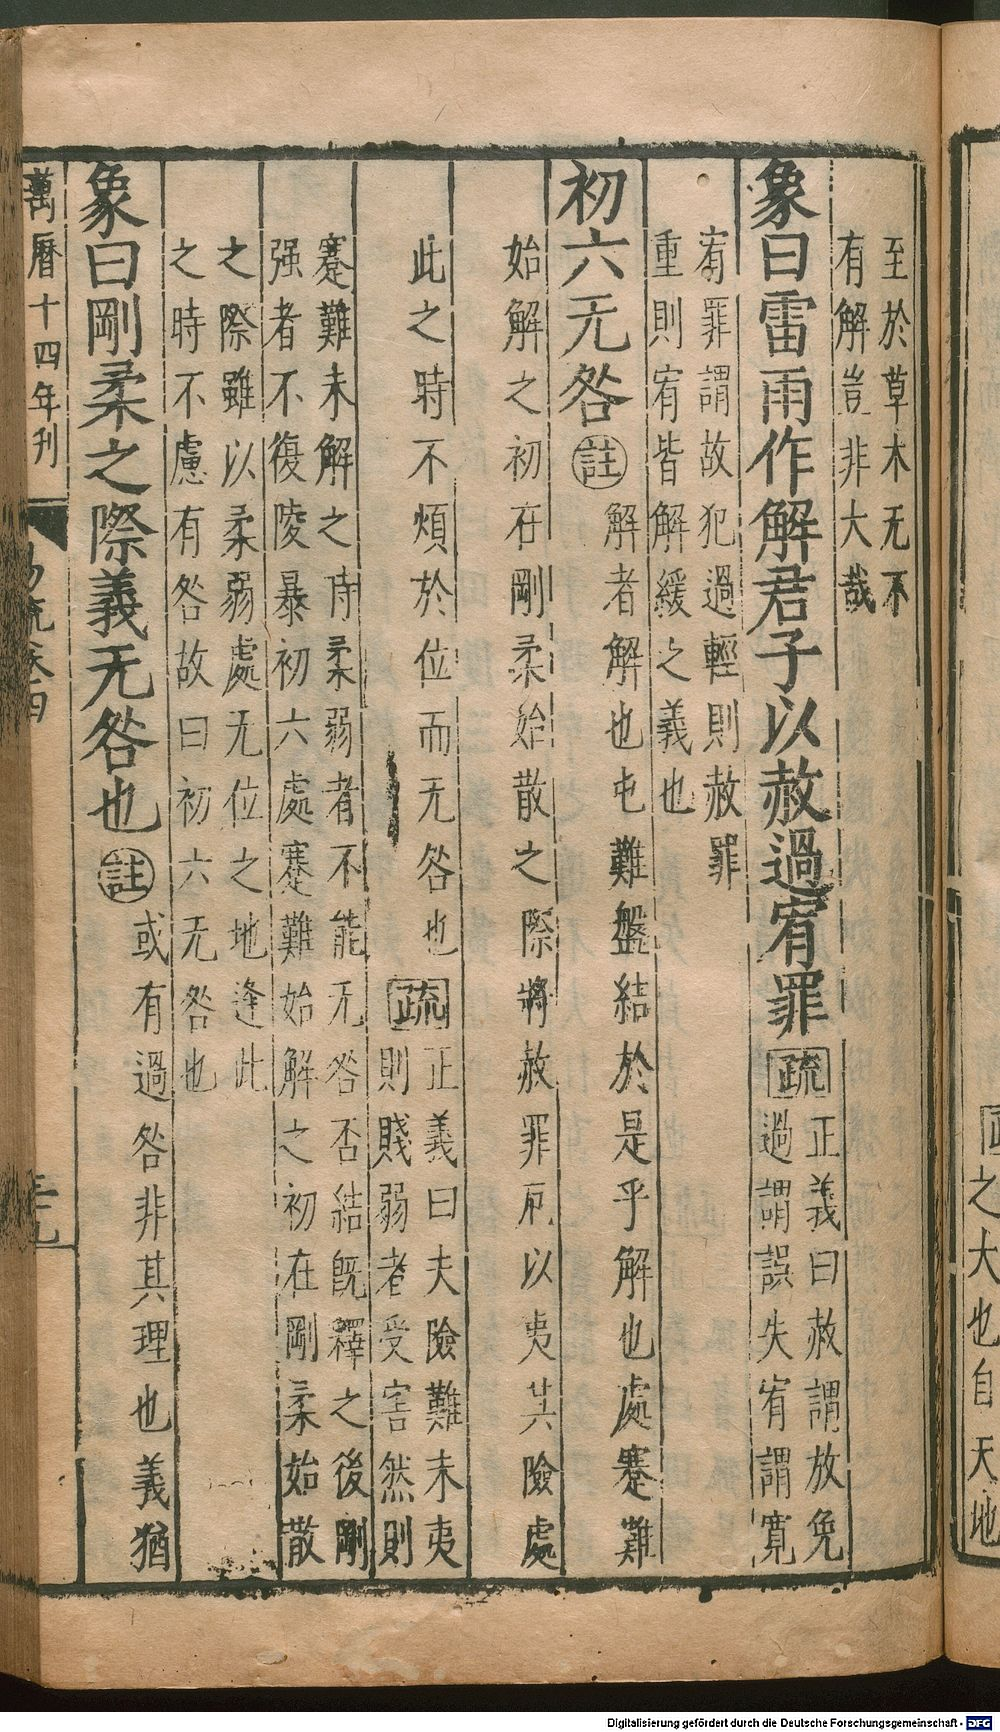 至於草木无不
有解豈非大哉
象曰雷雨作解君子以赦過宥罪疏正義曰赦謂放免
過謂誤失宥謂寬
宥罪謂故犯過輕則赦罪
重則宥皆解緩之義也
初六无咎註解者解也屯難盤結於是乎解也處蹇難
始解之初在剛柔始散之際將赦罪厄以夷其險處
此之時不煩於位而无咎也疏正義曰夫險難未夷
則賤弱者受害然則
蹇難未解之時柔弱者不能无咎否結旣釋之後剛
强者不復陵暴初六處蹇難始解之初在剛柔始散
之際雖以柔弱處无位之地逢此
之時不慮有咎故曰初六无咎也
象曰剛柔之際義无咎也註或有過咎非其理也義猶
萬曆十四年刊
易疏卷四
之大也自天地
Digitalisierung gefördert durch die Deutsche Forschungsgemeinschaft - DFG